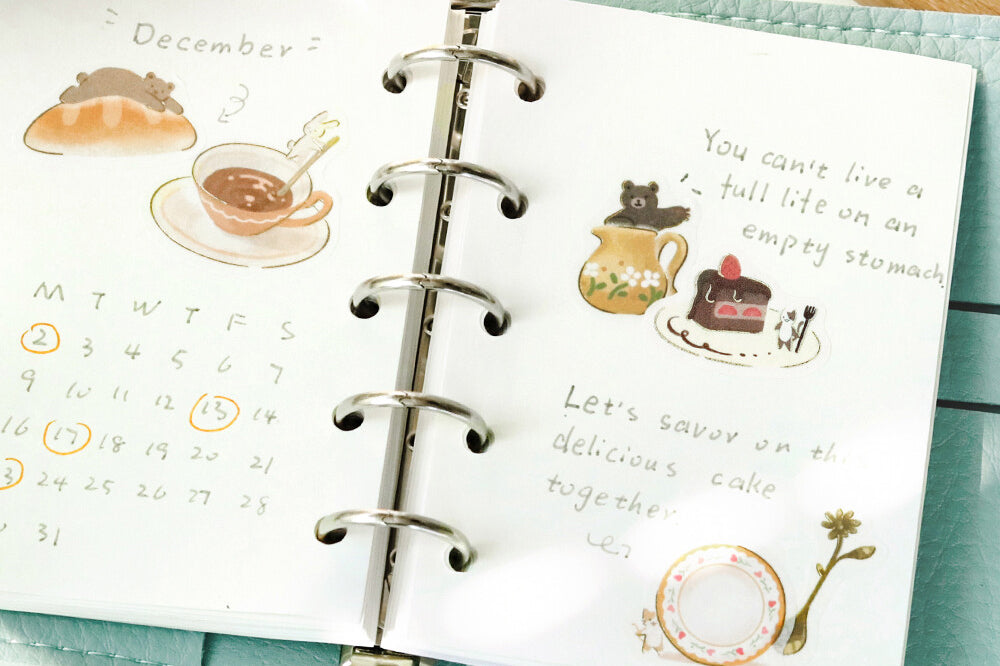 = December =
M T W T F S
2 3 4 5 6 7
9 10 11 12 13 14
16 17 18 19 20 21
3 24 25 26 27 28
31
You can't live a
full life on an
empty stomach.
Let's savor on this
delicious cake
together.